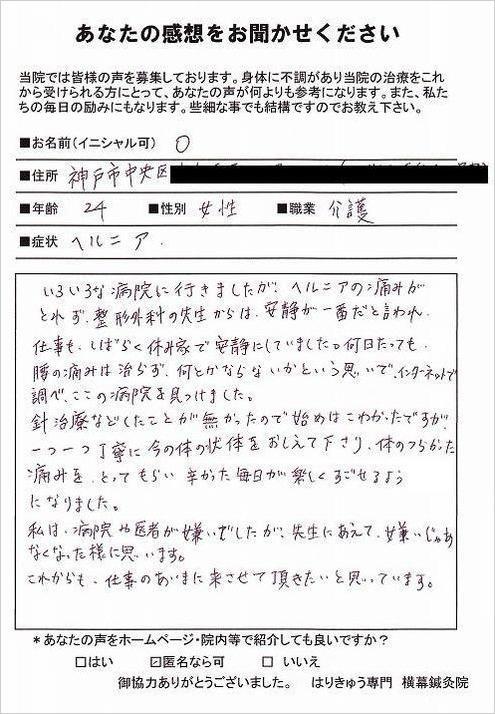 あなたの感想をお聞かせください
当院では皆様の声を募集しております。身体に不調があり当院の治療をこれ
から受けられる方にとって、あなたの声が何よりも参考になります。また、私た
ちの毎日の励みにもなります。些細な事でも結構ですのでお教え下さい。
■お名前(イニシャル可) O
■住所 神戸市中央区
■年齢 24 ■性別 女性 ■職業 介護
■症状 ヘルニア.
いろいろな病院に行きましたが、ヘルニアの痛みが
とれず、整形外科の先生からは、安静が一番だと言われ、
仕事も、しばらく休み家で安静にしていました。何日たっても、
腰の痛みは治らず、何とかならないかという思いで、インターネットで
調べ、ここの病院を見つけました。
針治療などしたことが無かったので始めはこわかったですが、
一つ一つ丁寧に今の体の状体をおしえて下さり、体のつらかった
痛みを、とってもらい辛かった毎日が楽しくすごせるよう
になりました。
私は、病院や医者が嫌いでしたが、先生にあえて、嫌いじゃあ
なくなった様に思います。
これからも、仕事のあいまに来させて頂きたいと思っています。
*あなたの声をホームページ・院内等で紹介しても良いですか?
□はい ☑匿名なら可 □ いいえ
御協力ありがとうございました。 はりきゅう専門 横幕鍼灸院